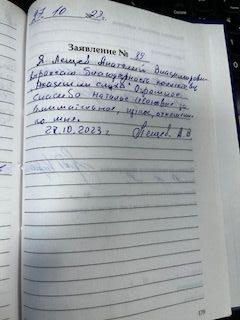 27 10 23г.
Заявление № 89
Я Лещев Анатолий Владимирович
выражаю благодарность коллективу
Академии слуха. Огромное
спасибо Наталье за
внимательное, отношение
ко мне.
28.10.2023г. Лещев А В
179